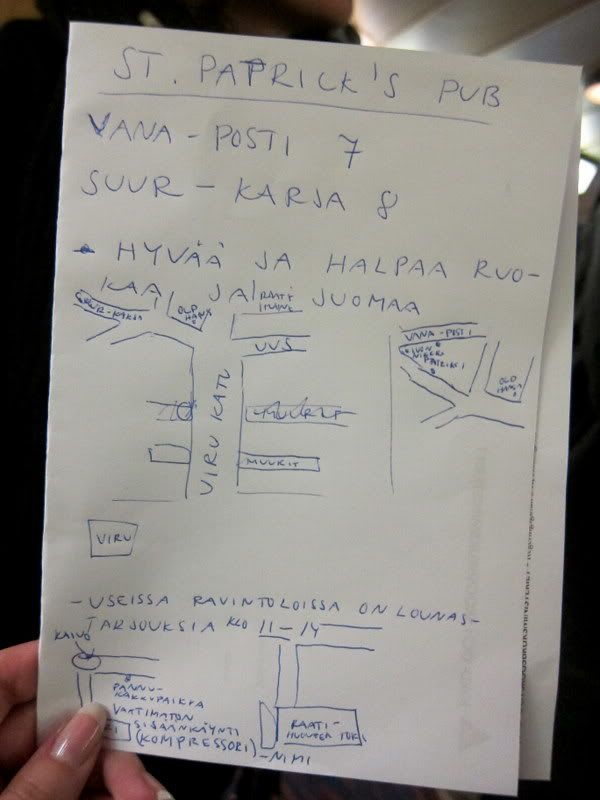 ST. PATRICK'S PUB
VANA-POSTI 7
SUUR-KARJA 8
HYVÄÄ JA HALPAA RUO-
KAA JA JUOMAA
SUUR-KARJA
OLD HANSA
RAATI
UUS
VIRU KATU
MUURIT
VIRU
VANA-POSTI
OLD HANSA
-USEISSA RAVINTOLOISSA ON LOUNAS-
TARJOUKSIA KLO 11-14
KAIVO
PANNU-
KAKKUPAIKKA
VAATIMATON
SISÄÄNKÄYNTI
(KOMPRESSORI)-NIMI
RAATI-
HUONEEN TORI